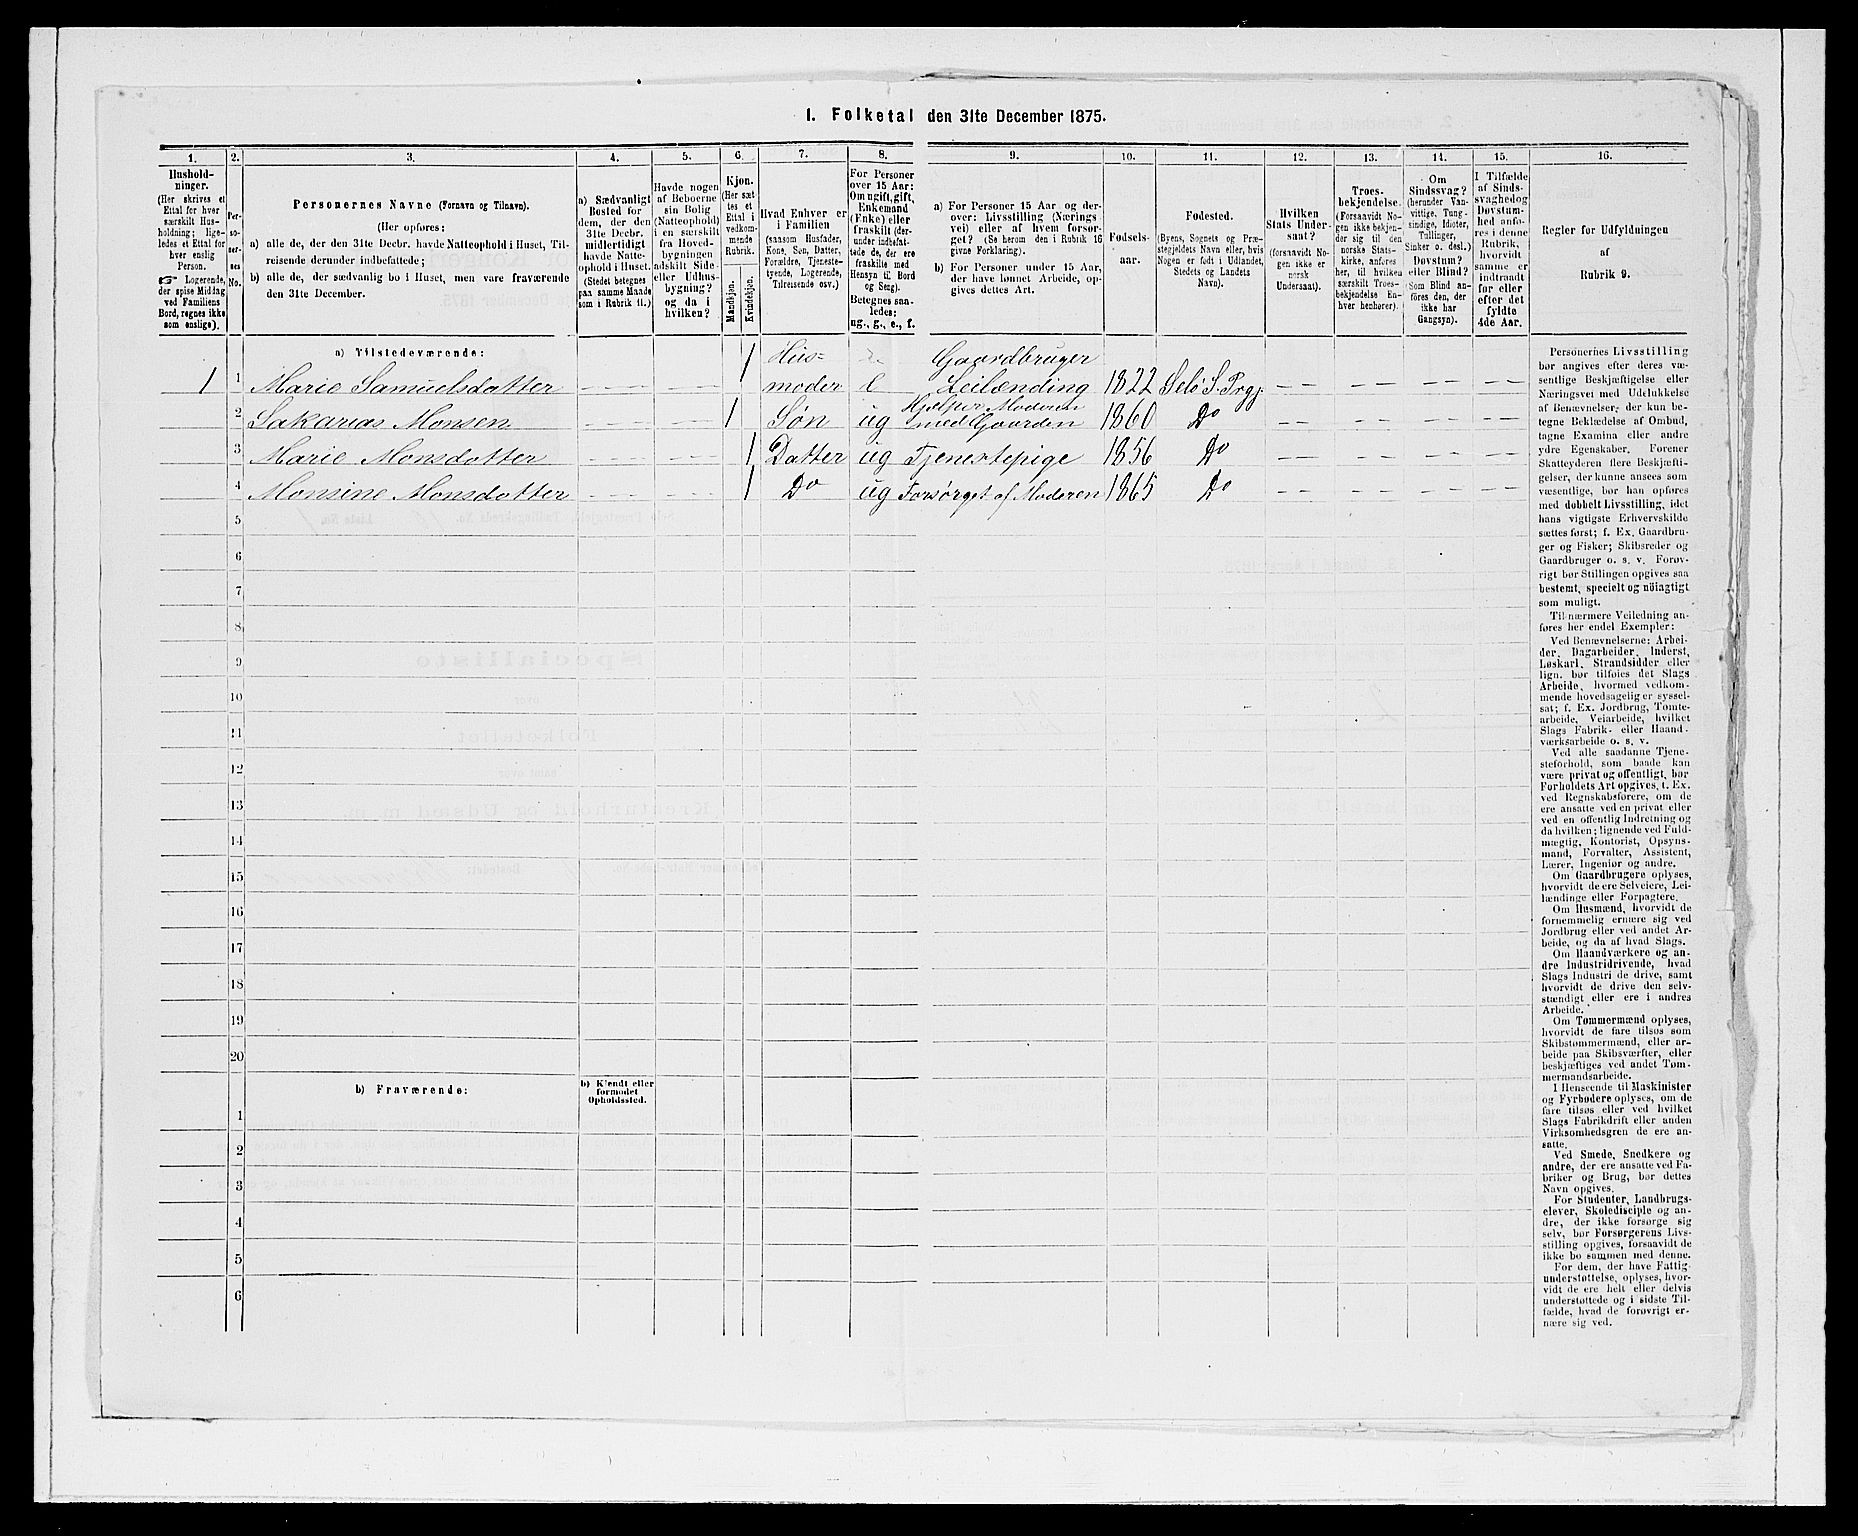 1. Folketal den 31te December 1875.
1. 2. 3. 4. 5. 6. 7. 8. 9. 10. 11. 12. 13. 14. 15. 16.
Hushold-
ninger.
(Her skrives et
Ettal for hver
særskilt Hus-
holdning; lige-
ledes et Ettal for
hver enslig
Person.
☞ Logerende,
der spise Middag
ved Familiens
Bord, regnes ikke
som enslige).
Per-
so-
ner-
nes
No.
Personernes Navne (Fornavn og Tilnavn).
(Her opføres:
a) alle de, der den 31te Decbr. havde Natteophold i Huset, Til-
reisende derunder indbefattede;
b) alle de, der sædvanlig bo i Huset, men vare fraværende
den 31te December.
a) Sædvanligt
Bosted for
dem, der den
31te Decbr.
midlertidigt
havde Natte-
ophold i Huset.
(Stedet betegnes
paa samme Maade
som i Rubrik 11.)
Havde nogen
af Beboerne
sin Bolig
(Natteophold)
i en særskilt
fra Hoved-
bygningen
adskilt Side-
eller Udhus-
bygning?
og da i
hvilken?
Kjøn.
(Her sæt-
tes et
Ettal i
vedkom-
mende
Rubrik.
Mandkjøn.
Kvindekjøn.
Hvad Enhver er
i Familien
(saasom Husfader,
Kone, Søn, Datter,
Forældre, Tjeneste-
tyende, Logerende,
Tilreisende osv.)
For Personer
over 15 Aar:
Om ugift, gift,
Enkemand
(Enke) eller
fraskilt (der-
under indbefat-
tede de, der ere
fraskilte med
Hensyn til Bord
og Seng).
Betegnes saa-
ledes:
ug., g., e., f.
a) For Personer 15 Aar og der-
over: Livsstilling (Nærings-
vei) eller af hvem forsør-
get? (Se herom den i Rubrik 16
givne Forklaring).
b) For Personer under 15 Aar,
der have lønnet Arbeide, op-
gives dettes Art.
Fødsels-
aar.
Fødested.
(Byens, Sognets og Præ-
stegjeldets Navn eller, hvis
Nogen er født i Udlandet,
Stedets og Landets
Navn).
Hvilken
Stats Under-
saat?
(forsaavidt No-
gen ikke er
norsk
Undersaat).
Troes-
bekjendelse.
(Forsaavidt No-
gen ikke bekjen-
der sig til den
norske Stats-
kirke, anføres
her, til hvilken
særskilt Troes-
bekjendelse En-
hver henhører).
Om
Sindssvag?
(herunder Van-
vittige, Tung-
sindige, Idioter,
Tullinger,
Sinker o. desl.)
Døvstum?
eller Blind?
(Som Blind an-
føres den, der
ikke har
Gangsyn).
I Tilfælde
af Sinds-
svaghed og
Døvstum-
hed anfø-
res i denne
Rubrik,
hvorvidt
samme er
indtraadt
før eller
efter det
fyldte
4de Aar.
Regler for Udfyldningen
af
Rubrik 9.
a) Tilstedeværende:
1 1 Marie Samuelsdatter 1 Hus-
moder e Gaardbruger
Leilænding 1822 Selö S. Prgj.
2 Sakarias Monsen 1 Søn ug Hjelper Moderen
med Gaarden 1860 Do
3 Marie Monsdatter 1 Datter ug Tjenestepige 1856 Do
4 Monsine Monsdatter 1 Do ug Forsørget af Moderen 1865 Do
5
6
7
8
9
10
11
12
13
14
15
16
17
18
19
20
b) Fraværende:
b) Kjendt eller
formodet
Opholdssted.
1
2
3
4
5
6
Personernes Livsstilling
bør angives efter deres væ-
sentlige Beskjæftigelse eller
Næringsvei med Udelukkelse
af Benævnelser, der kun be-
tegne Beklædelse af Ombud,
tagne Examina eller andre
ydre Egenskaber. Forener
Skatteyderen flere Beskjæfti-
gelser, der kunne ansees som
væsentlige, bør han opføres
med dobbelt Livsstilling, idet
hans vigtigste Erhvervskilde
sættes først; f. Ex. Gaardbru-
ger og Fisker; Skibsreder og
Gaardbruger o. s. v. Forøv-
rigt bør Stillingen opgives saa
bestemt, specielt og nøiagtigt
som muligt.
Til nærmere Veiledning an-
føres her endel Exempler:
Ved Benævnelserne: Arbei-
der, Dagarbeider, Inderst,
Løskarl, Strandsidder eller
lign. bør tilføies det Slags
Arbeide, hvormed vedkom-
mende hovedsagelig er syssel-
sat; f. Ex. Jordbrug, Tomte-
arbeide, Veiarbeide, hvilket
Slags Fabrik- eller Haand-
værksarbeide o. s. v.
Ved alle saadanne Tjene-
steforhold, som baade kan
være privat og offentligt, bør
Forholdets Art opgives, t. Ex.
ved Regnskabsførere, om de
ere ansatte ved en privat eller
ved en offentlig Indretning og
da hvilken; lignende ved Fuld-
mægtig, Kontorist, Opsyns-
mand, Forvalter, Assistent,
Lærer, Ingeniør og andre.
Om Gaardbrugere oplyses,
hvorvidt de ere Selveiere, Lei-
lændinge eller Forpagtere.
Om Husmænd, hvorvidt de
fornemmelig ernære sig ved
Jordbrug eller ved andet Ar-
beide, og da af hvad Slags.
Om Haandværkere og an-
dre Industridrivende, hvad
Slags Industri de drive, samt
hvorvidt de drive den selv-
stændigt eller ere i andres
Arbeide.
Om Tømmermænd oplyses,
hvorvidt de fare tilsøs som
Skibstømmermænd, eller ar-
beide paa Skibsværfter, eller
beskjæftiges ved andet Tøm-
mermandsarbeide.
I Henseende til Maskinister
og Fyrbødere oplyses, om de
fare tilsøs eller ved hvilket
Slags Fabrikdrift eller anden
Virksomhedsgren de ere an-
satte.
Ved Smede, Snedkere og
andre, der ere ansatte ved Fa-
briker og Brug, bør dettes
Navn opgives.
For Studenter, Landbrugs-
elever, Skoledisciple og an-
dre, der ikke forsørge sig
selv, bør Forsørgerens Livs-
stilling opgives, forsaavidt de
ikke bo sammen med denne.
For dem, der have Fattig-
understøttelse, oplyses, hvor-
vidt de ere helt eller delvis
understøttede og i sidste Til-
fælde, hvad de forøvrigt er-
nære sig ved.